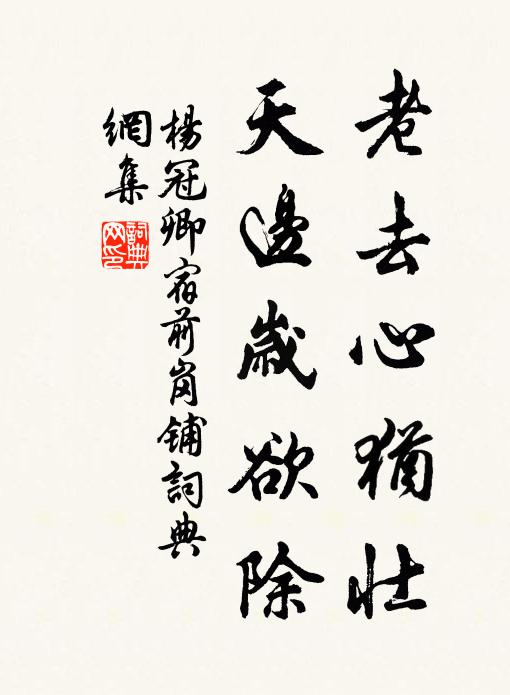 老去心猶壯
天邊歲欲除
楊冠卿宿前岗鋪詞典
網集
詞典
网印